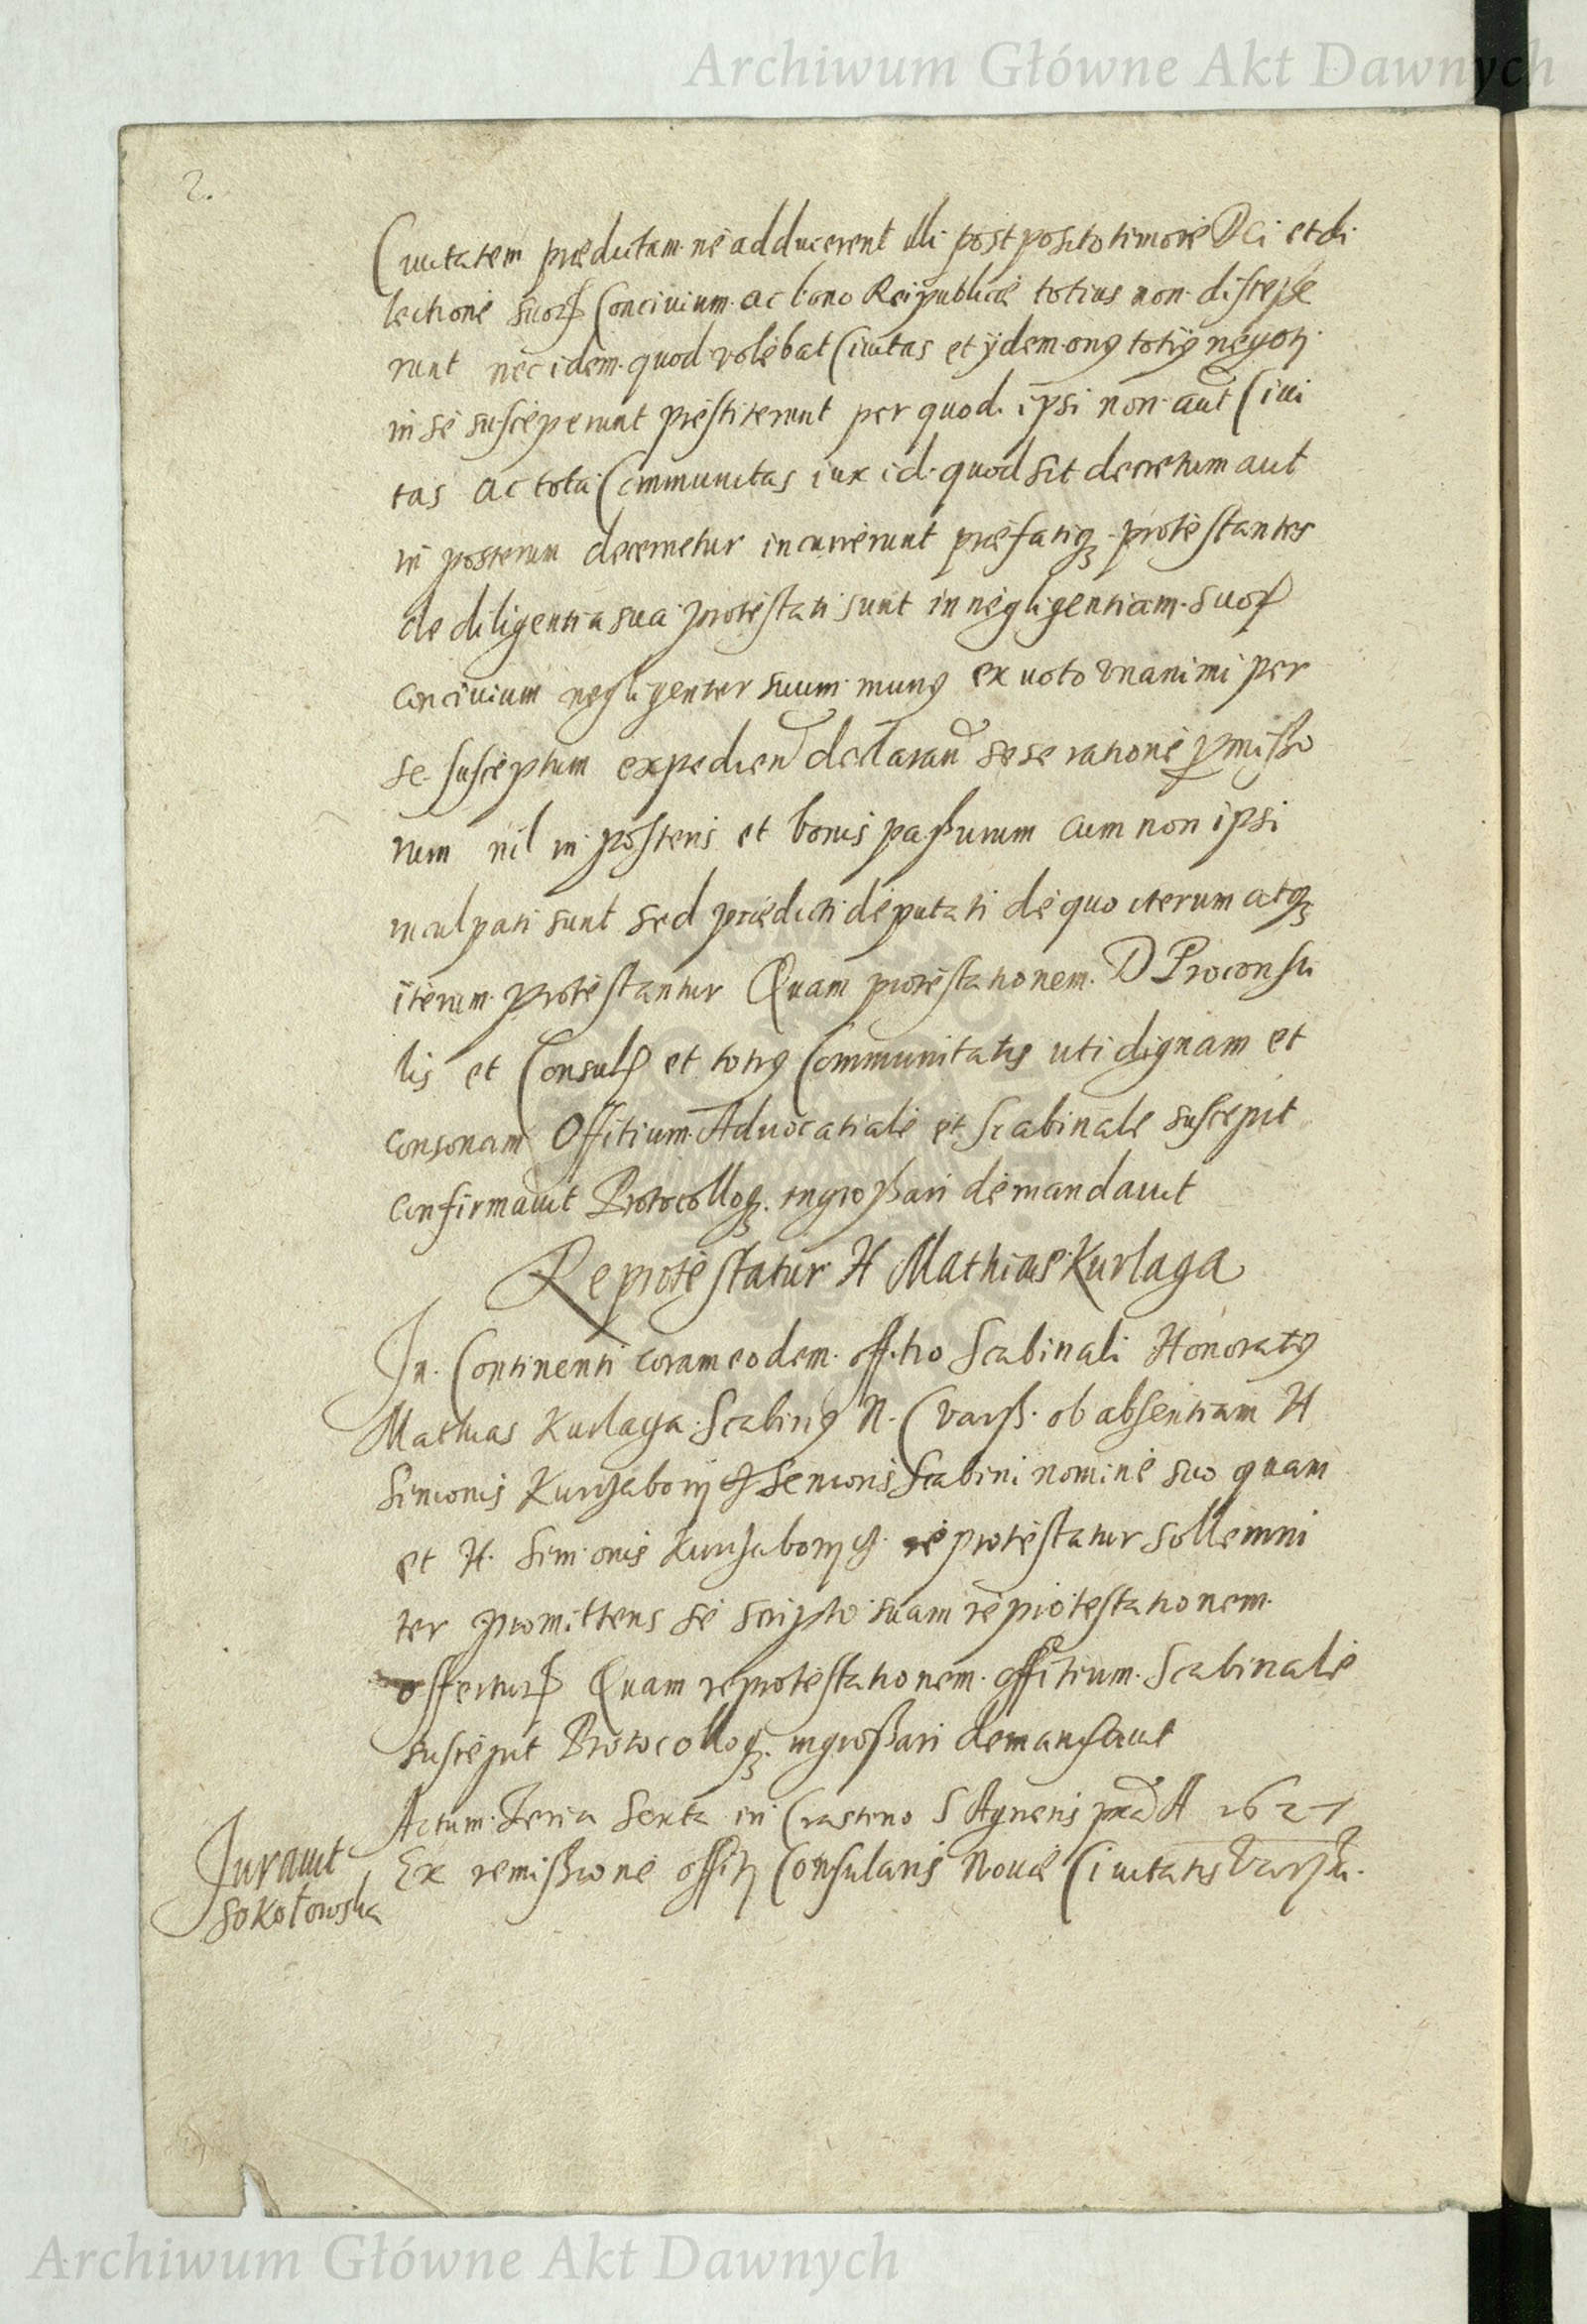 Archiwum Główne Akt Dawnych
2.
Ciuitatem prædictam ne adducerent illi postposito timore Dei et di
lectione suorꝝ Conciuium ac bono Reipublicæ totius non discesse
runt nec idem quod volebat Ciuitas et ijdem onus totius negotij
in se susceperunt prestiterunt per quod ipsi non aut Ciui
tas ac tota Communitas iux id quod sit decretum aut
in posterum decernetur incurrerunt præfatiqꝫ protestantes
de diligentia sua protestati sunt in negligentiam suoꝝ
conciuium negligenter suum munus ex uoto vnanimi per
se susceptum expedien declaran sese ratione pmisso
rum nil in posteris et bonis passurum cum non ipsi
inculpati sunt sed prædicti deputati de quo iterum atqꝫ
iterum protestantur Quam protestationem D Proconsu
lis et Consulꝝ et totius Communitatis uti dignam et
consonam Offitium Aduocatiale et Scabinale suscepit
confirmauit Protocolloqꝫ ingrossari demandauit
Reprotestatur H Mathiae Kurlaga
In Continenti coram eodem offitio Scabinali Honoratus
Mathias Kurlaga Scabinus N. C Vars. ob absentiam H
Simonis Senioris Scabini nomine suo quam
et H. Simonis reprotestatur sollemni
ter promittens se scripto suam reprotestationem
offerturꝝ Quam reprotestationem offitium Scabinale
suscepit Protocolloqꝫ ingrossari demandauit
Actum Feria Sexta in Crastino S Agnetis A 1621
Ex remissione offitij Consularis Nouæ Ciuitatis Varsu.
Jurauit
Sokołowska
Archiwum Główne Akt Dawnych